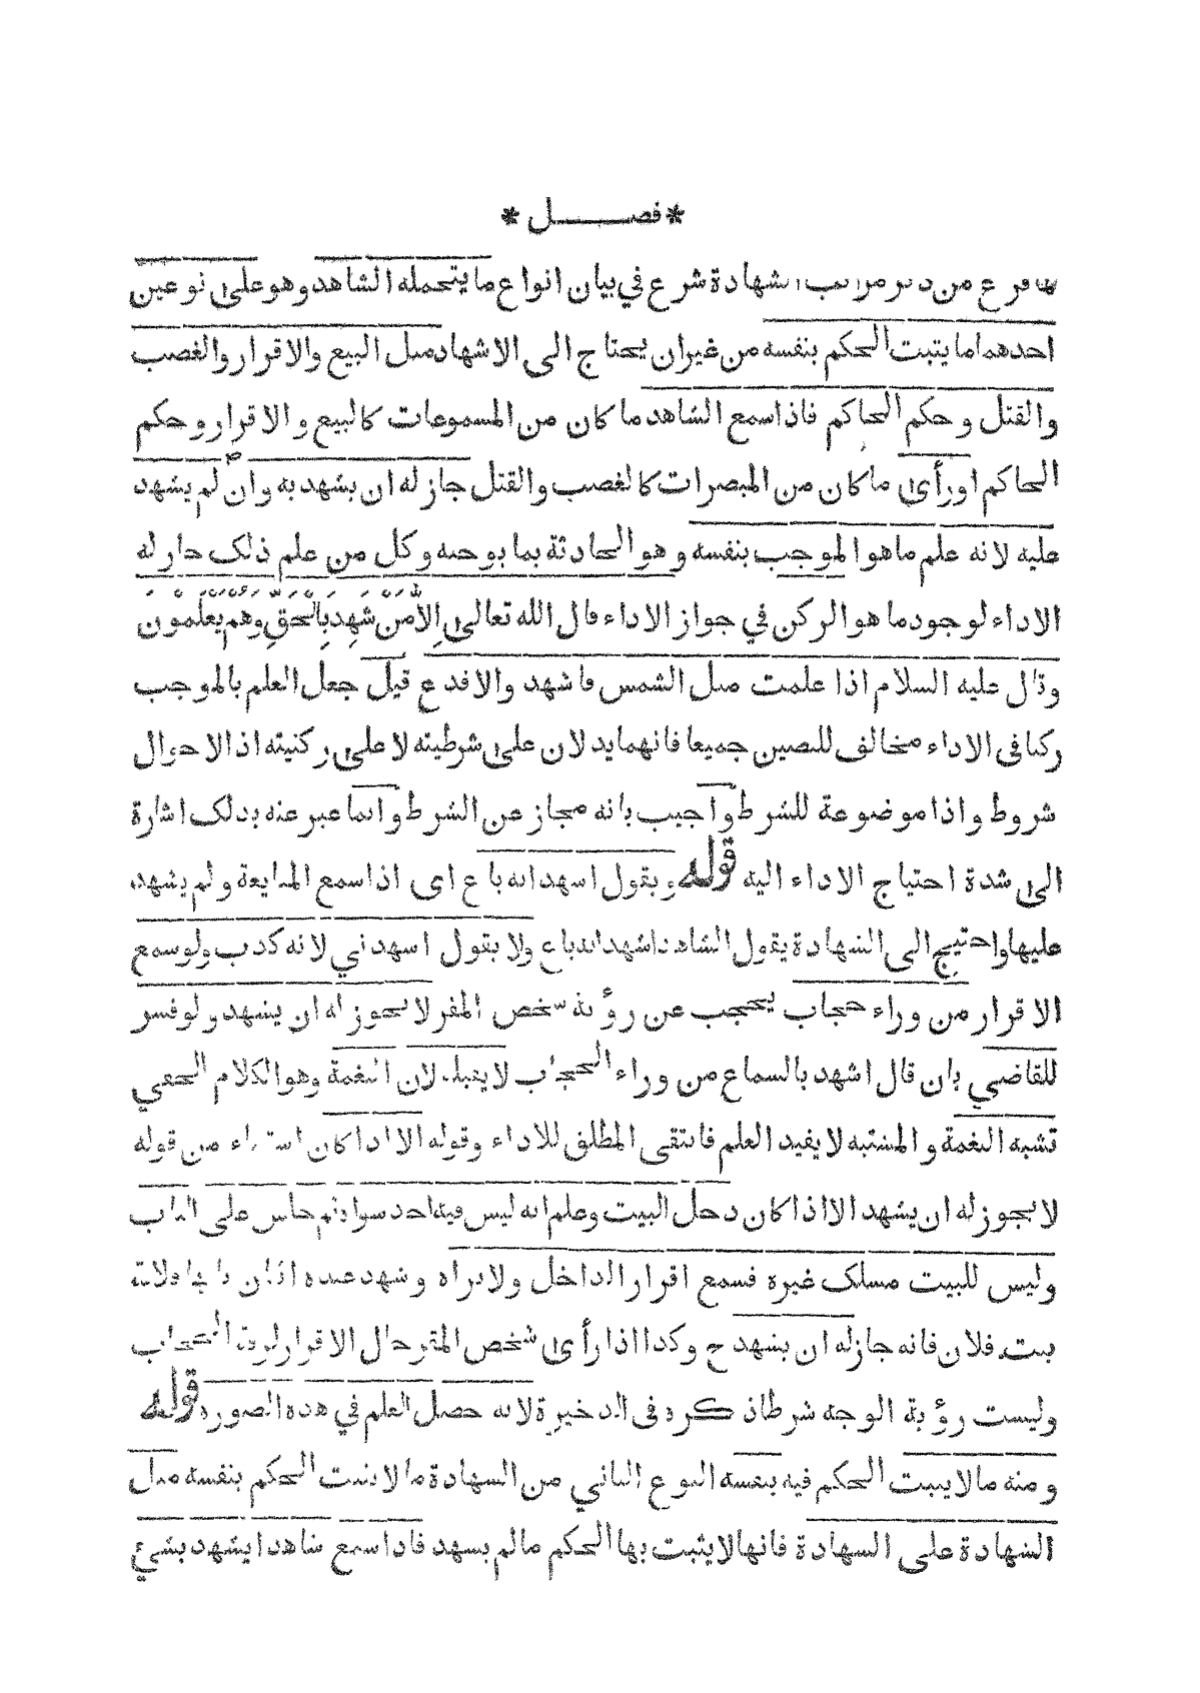 * فصل *
لما فرغ من ذكر مراتب الشهادة شرع في بيان انواع ما يتحمله الشاهد وهو على نوعين
احدهما ما يثبت الحكم بنفسه من غير ان يحتاج الى الاشهاد مثل البيع والاقرار والغصب
والقتل وحكم الحاكم فاذا سمع الشاهد ما كان من المسموعات كالبيع والاقرار وحكم
الحاكم او رأى ما كان من المبصرات كالغصب والقتل جاز له ان يشهد به وان لم يشهد
عليه لانه علم ما هو الموجب بنفسه وهو الحادثة بما يوجبه وكل من علم ذلك جاز له
الاداء لوجود ما هو الركن في جواز الاداء قال الله تعالى اِلَّا مَنْ شَهِدَ بِالْحَقِّ وَهُمْ يَعْلَمُوْنَ
وقال عليه السلام اذا علمت مثل الشمس فاشهد والا فدع قيل جعل العلم بالموجب
ركنا فى الاداء مخالف للنصين جميعا فانهما يدلان على شرطيته لا على ركنيته اذ الاحوال
شروط واذا موضوعة للشرط واجيب بانه مجاز عن الشرط وانما عبر عنه بذلك اشارة
الى شدة احتياج الاداء اليه قوله ويقول اشهد انه باع اى اذا سمع المبايعة ولم يشهد
عليها واحتيج الى الشهادة يقول الشاهد اشهد انه باع ولا يقول اشهدني لانه كذب ولو سمع
الاقرار من وراء حجاب يحجب عن رؤية شخص المقر لا يجوز له ان يشهد ولو فسر
للقاضي بان قال اشهد بالسماع من وراء الحجاب لا يقبله لان النغمة وهو الكلام الخفي
تشبه النغمة والمشتبه لا يفيد العلم فانتفى المطلق للاداء وقوله الا اذا كان استثناء من قوله
لا يجوز له ان يشهد الا اذا كان دخل البيت وعلم انه ليس فيه احد سواه ثم جلس على الباب
وليس للبيت مسلك غيره فسمع اقرار الداخل ولا يراه وشهد عنده اثنان بانها فلانة
بنت فلان فانه جاز له ان يشهد ح وكذا اذا رأى شخص المقر حال الاقرار لرقة الحجاب
وليست رؤية الوجه شرطا ذكره فى الذخيرة لانه حصل العلم في هذه الصورة قوله
ومنه ما لا يثبت الحكم فيه بنفسه النوع الثاني من الشهادة ما لا يثبت الحكم بنفسه مثل
الشهادة على الشهادة فانها لا يثبت بها الحكم ما لم يشهد فاذا سمع شاهدا يشهد بشئ